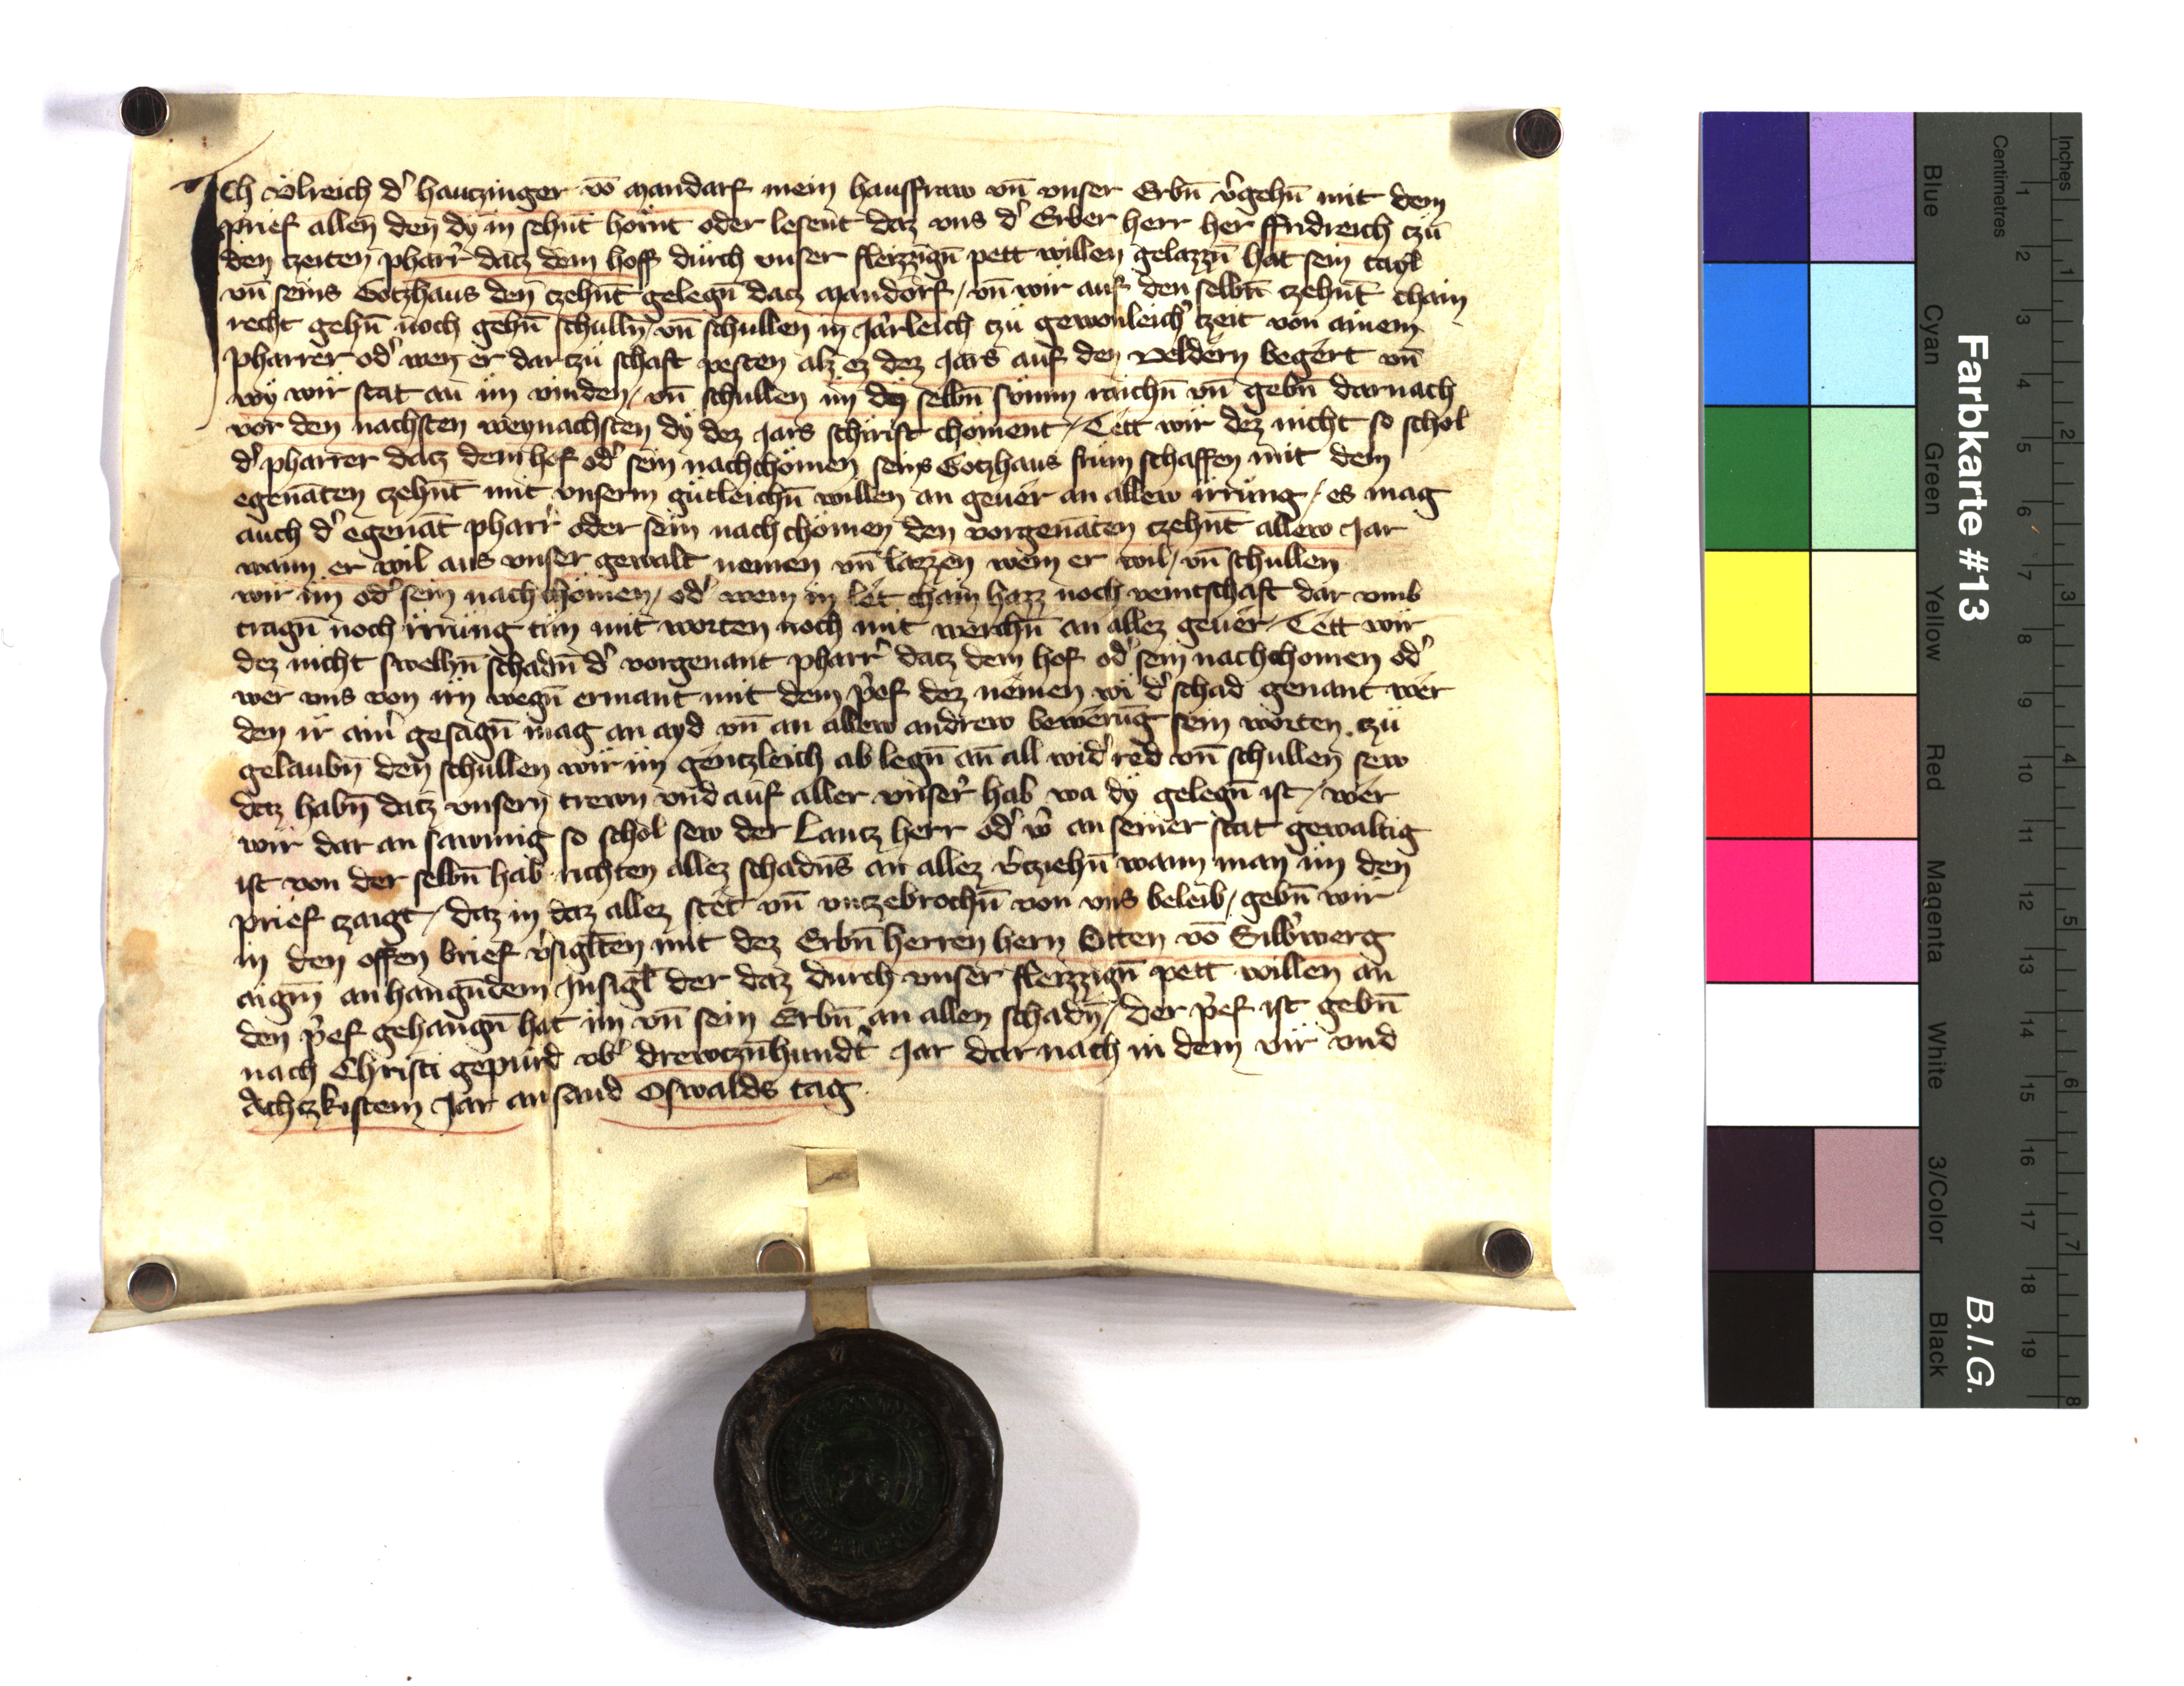 Ich Ulreich d' hautzinger vō mandarf mein hausfraw vn̄ vnser Erbn̄ v'gehn̄ mit dem
prief allen den dy in sehnt hörnt oder lesent daz vns d' Erber herr her ffridreich tzu
den tzeiten pharr' datz dem hoff durch vnser fleizzign̄ pett willen gelazzn̄ hat sein tayl
vn̄ seins Gotzhaus den tzehn̄t gelegn̄ datz mandorf / vn̄ wir auf den selbn̄ tzehn̄t chain
recht gehn̄ noch gehn̄ schulln̄ / vn̄ schullen in Jarleich tzu gewonleich' tzeit von ainem
pharrer od' wen er dar tzu schaft pesten alz ez dez Jars auf den veldern begert vn̄
wy wir stat an im vinden / vn̄ schullen im dy selbn̄ sum̄m raichn̄ vn̄ gebn̄ darnach
vor den nachsten weynachsten dy dez Jars schirist choment / Tett wir dez nicht so schol
d' pharrer datz dem hof od' sein nachchömen seins Gotzhaus frum schaffen mit dem
egenāten tzehn̄t mit vnserm gütleichn̄ willen an geuer an allew irrung / es mag
auch d' egenāt pharr' oder sein nachchömen den vorgenāten tzehn̄t allew Jar
wann er wil aus vnser gewalt nemen vn̄ lazzen wem er wil / vn̄ schullen
wir im od' sein nachchömen / od' wem in let chain hazz noch veintschaft dar vmb
tragn̄ noch irrung tun mit worten noch mit werchn̄ an allez geuer / Tett wir
dez nicht swelhn̄ schadn̄ d' vorgenant pharr' datz dem hof od' sein nachchomen od'
wer vns von irn wegn̄ ermant mit dem p'ef dez nemen wi d' schad genant wer
den ir ain' gesagn̄ mag an ayd vn̄ an allew andrew bewerūg sein worten tzu
gelaubn̄ den schullen wir im gentzleich ab legn̄ an all wid' red vn̄ schullen sew
daz habn̄ datz vnsern trewn vnd auf aller vnser' hab wa dy gelegn̄ ist / wer
wir dar an sawmig so schol sew der Lantz herr od' w' an seiner stat gewaltig
ist von der selbn̄ hab richten allez schadn̄s an allez v'tziehn̄ wann man im den
prief tzaigt / daz in daz allez stet vn̄ vntzebrochn̄ von vns beleib / gebn̄ wir
in den offen brief v'siglten mit dez Erbn̄ herren hern Otten vō Silb'werg
aigm̄ anhangūdem Insigl der daz durch vnser fleizzign̄ pett willen an
den p'ef gehangn̄ hat im vn̄ sein Erbn̄ an allen schadn̄ / der p'ef ist gebn̄
nach Christi gepurd vb' drewtzn̄hundt' Jar dar nach in dem vir vnd
Achtzkistem Jar an sand Oswalds tag
Farbkarte #13
B.I.G.
Blue
Cyan
Green
Yellow
Red
Magenta
White
3/Color
Black
Centimetres
1 2 3 4 5 6 7 8 9 10 11 12 13 14 15 16 17 18 19
Inches
1 2 3 4 5 6 7 8